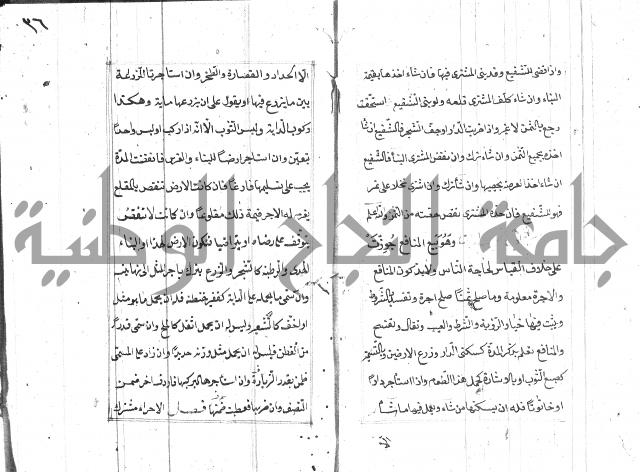 واذا قضي للشفيع وقد بنى المشترى فيها فان شاء اخذها بقيمة
البناء وان شاء كلف المشترى قلعه ولو بنى الشفيع استحقت
رجع بالثمن لا غير واذا خربت الدار او جف الشجر فالشفيع ان شاء
اخذه بجميع الثمن وان شاء ترك وان نقض المشترى البناء فالشفيع
ان شاء اخذ العرصة بحصتها وان شاء ترك وان اشترى نخلا على ثمر
فهو للشفيع فان جده المشترى نقص حصته من الثمن والله اعلم
وهو بيع المنافع جوزت
على خلاف القياس لحاجة الناس ولا بد كون المنافع
والاجرة معلومة وما صلح ثمنا صلح اجرة وتفسد بالشروط
ويثبت فيها خيار الرؤية والشرط والعيب وتقال وتفسخ
والمنافع تعلم بذكر المدة كسكنى الدار وزرع الارضين والتسمية
كصبغ الثوب او بالاشارة كحمل هذا الطعام واذا استاجر دارا
او حانوتا فله ان يسكنها من شاء ويعمل فيها ما شاء
الا
٣٦
الا الحداد والقصارة والطحن وان استاجر ارضا للزراعة
بين ما يزرع فيها او يقول على ان يزرعها ما شاء وهكذا
ركوب الدابة ولبس الثوب الا انه اذا ركب او لبس واحدا
تعين وان استاجر ارضا للبناء والغرس فانقضت المدة
يجب عليه تسليمها فارغة فان كانت الارض تنقص بالقلع
يغرم له الاجر قيمة ذلك مقلوعا وان كانت لا تنقص
يتوقف على رضاه او يتراضيا فتكون الارض لهذا والبناء
لهذا والرطبة كالشجر والزرع يترك باجر المثل الى نهايته
وان سمى ما يحمل على الدابة كقفيز حنطة فله ان يحمل ما هو مثله
او اخف كالشعير وليس له ان يحمل اثقل كالملح وان سمى قدرا
من القطن فليس له ان يحمل مثل وزنه حديدا وان زاد على المسمى
ضمن بقدر الزيادة وان استاجرها ليركبها فاردف اخر ضمن
النصف وان ضربها فعطبت ضمنها فصل الاجراء مشترك
جامعة النجاح الوطنية